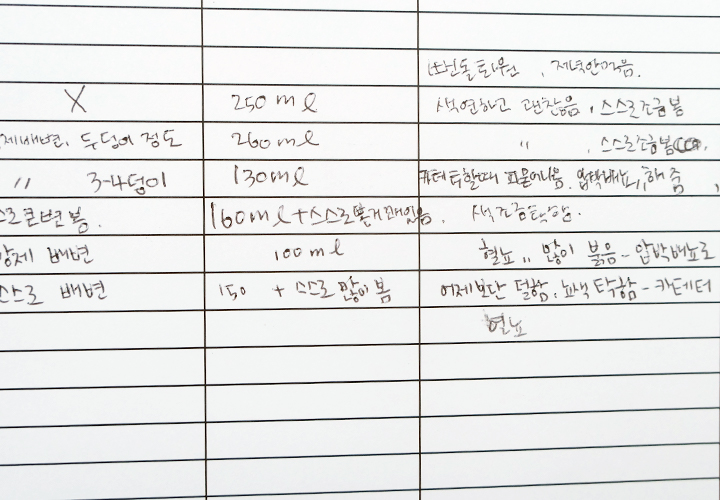 퇴원, 저녁안먹음.
X 250ml 색연하고 괜찮음, 스스로조금봄
제배변, 두덩이 정도 260ml 〃 , 스스로조금봄
〃 3-4덩이 130ml 카테터할때 피묻어나옴. 압박배뇨,, 해줌,
스로큰변봄. 160ml+스스로 색조금탁함.
강제 배변 100ml 혈뇨,, 많이 붉음-압박배뇨로
스스로 배변 150 + 스스로 많이 봄 어제보단 덜함, 뇨색 탁함-카테터
혈뇨